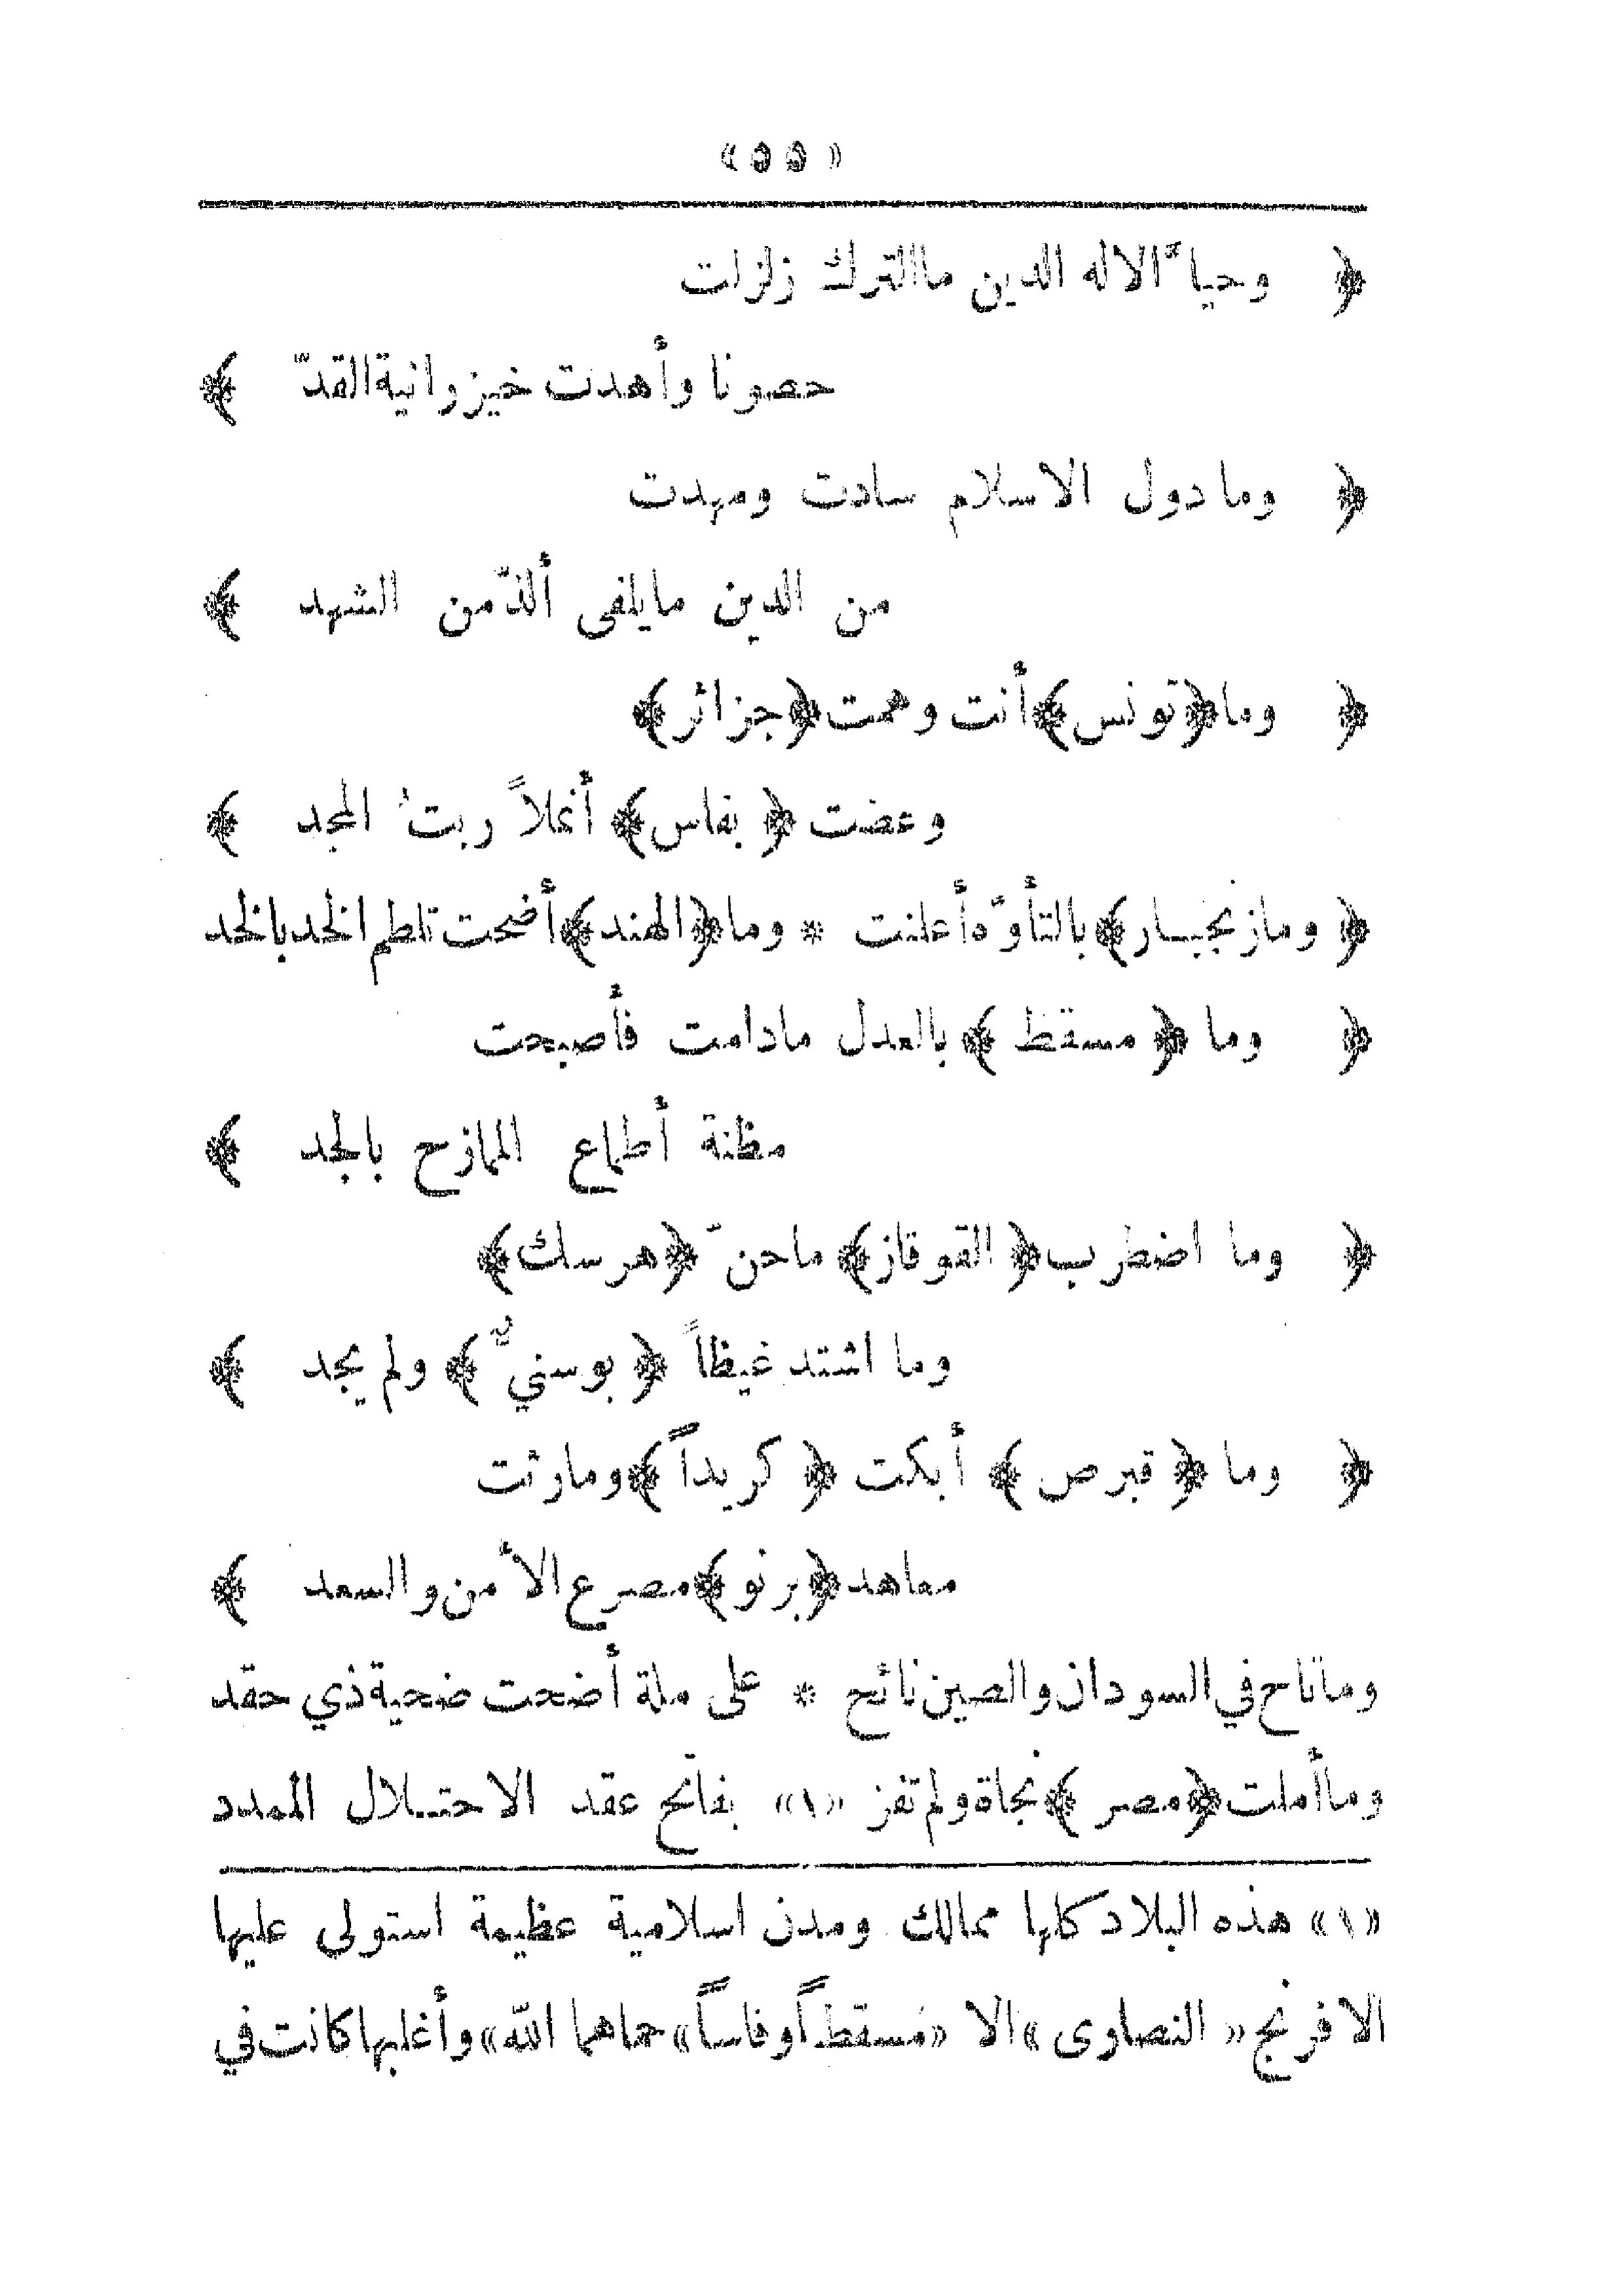 « ٥٥ »
﴿ وحيا ّالاله الدين ماالترك زلزلت
حصونا وأهدت خيزرانيةالقدّ ﴾
﴿ ومادول الاسلام سادت ومهدت
من الدين مايلفى ألذّمن الشهد ﴾
﴿ وما﴿تونس﴾أنت وهمت﴿جزائر﴾
وعضت ﴿ بفاس﴾ أنملاً ربتُ المجد ﴾
﴿ ومازنجبـار﴾بالتأوّه أعلنت * وما﴿الهند﴾أضحت تلطم الخدبالخد
﴿ وما ﴿ مسقط ﴾بالعدل مادامت فأصبحت
مظنة أطماع الممازح بالجد ﴾
﴿ وما اضطرب﴿ القوقاز﴾ ماحنّ ﴿هرسك﴾
وما اشتد غيظاً ﴿ بوسنيٌّ ﴾ ولم يجد ﴾
﴿ وما ﴿ قبرص ﴾ أبكت ﴿ كريداً ﴾ومارثت
معاهد﴿برنو﴾مصرع الأمن والسعد ﴾
وماناح في السودان والصين نائح * على ملة أضحت ضحية ذي حقد
وماأملت﴿مصر ﴾نجاة ولم تفز «١» بفاتح عقد الاحتـلال الممدد
«١» هذه البلاد كلها ممالك ومدن اسلامية عظيمة استولى عليها
الافرنج « النصارى »الا «مسقطاًوفاساً» حماهما الله» وأغلبها كانت في